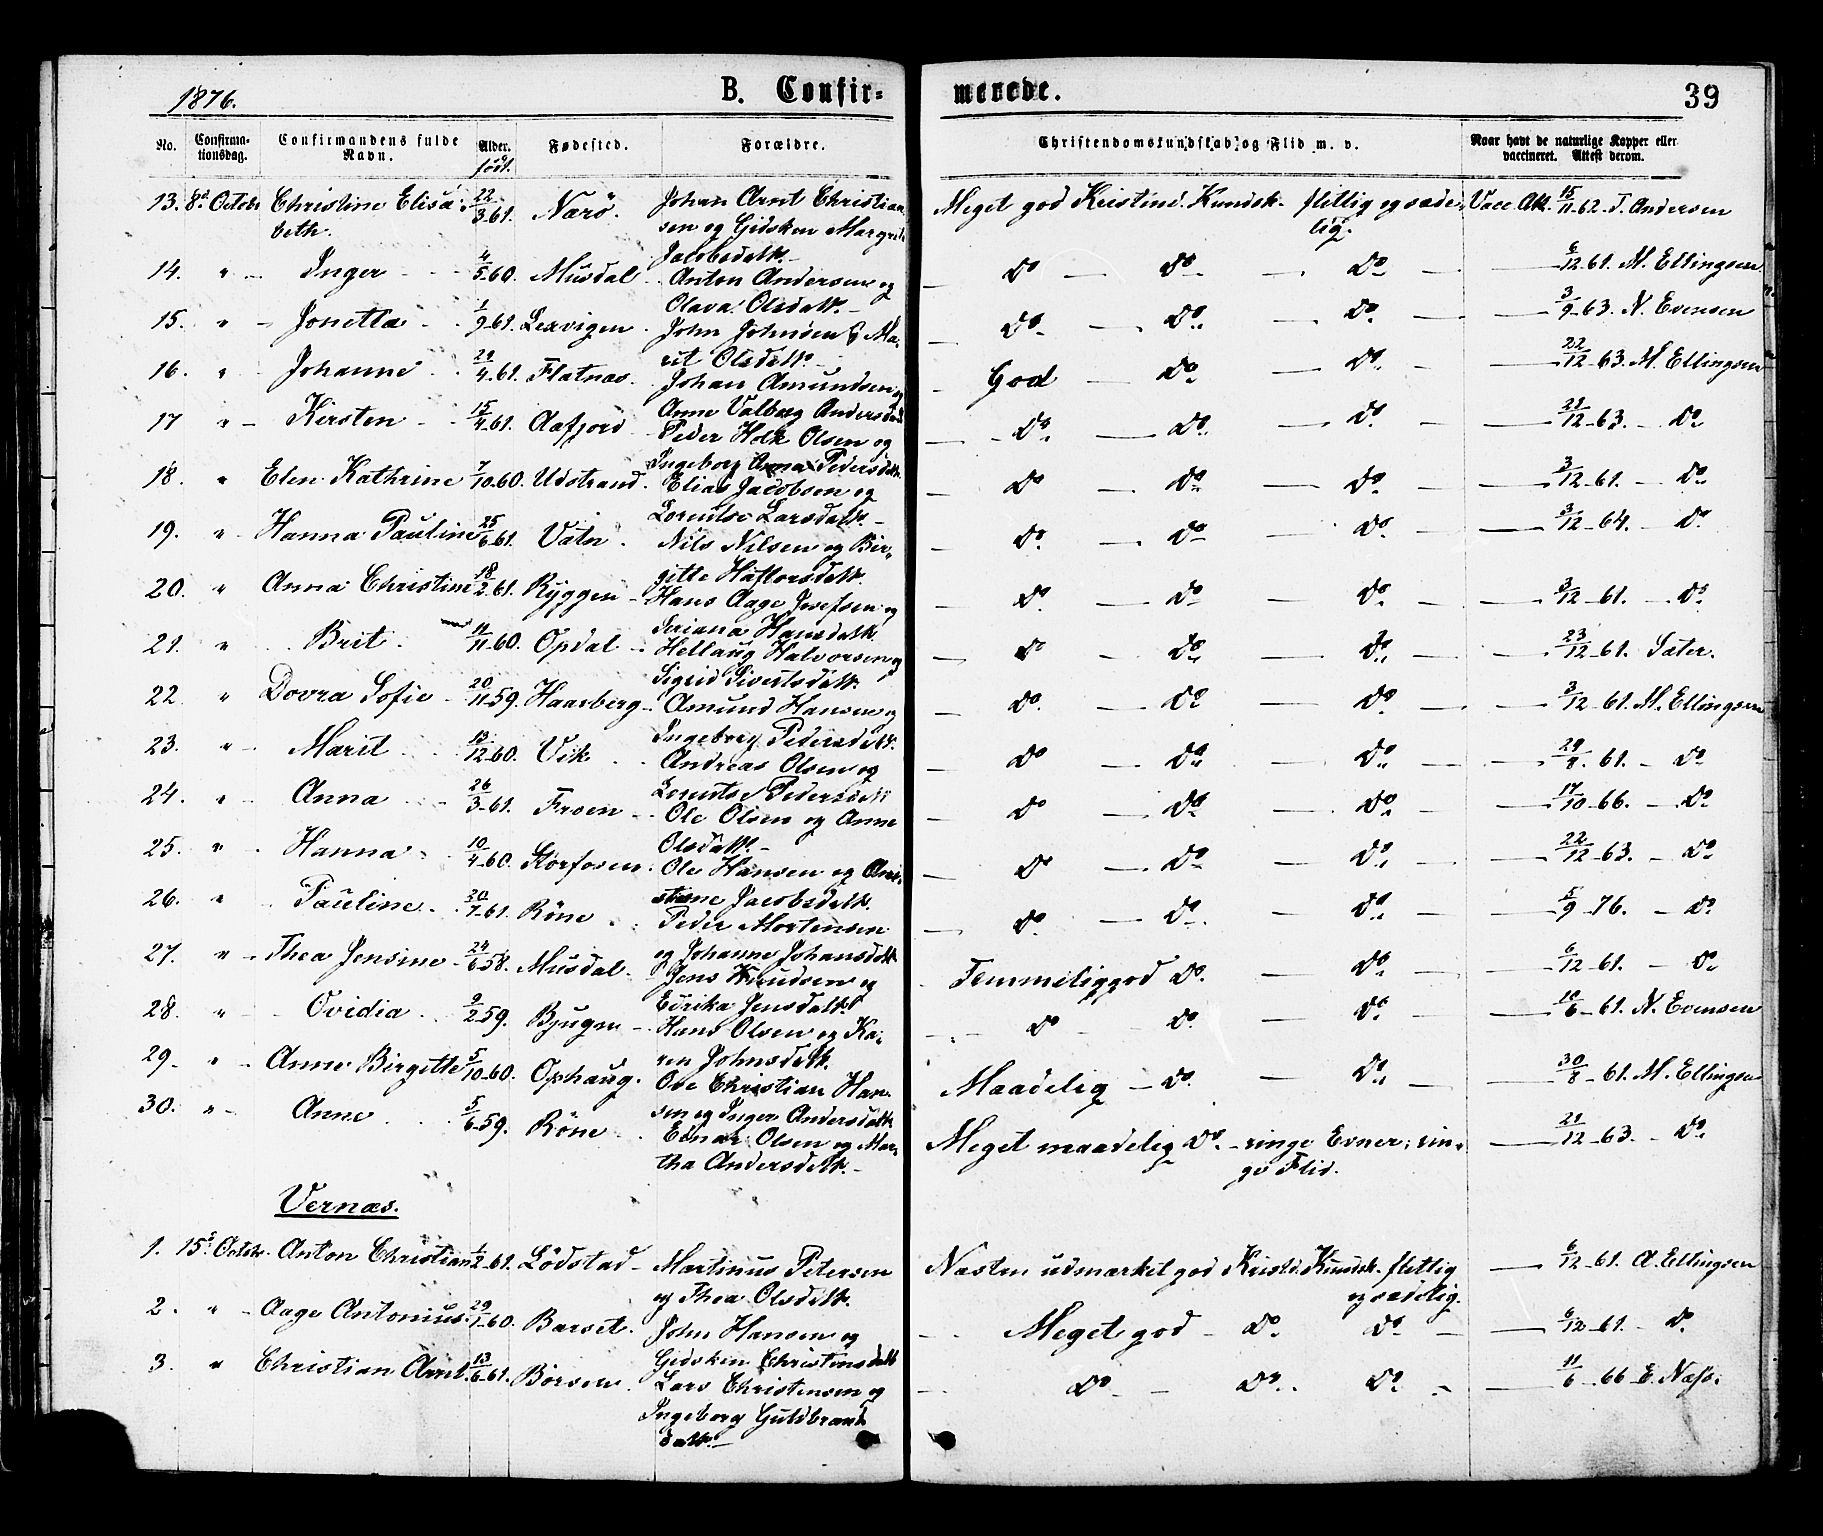 1876.
B. Confir-
merede.
39
No.
Confirma-
tionsdag.
Confirmandens fulde
Navn.
Alder.
født.
Fødested.
Forældre.
Christendomskundskab og Flid m. v.
Naar havt de naturlige Kopper eller
vaccineret. Attest derom.
13. 8d. Octobr Christine Elisa- 22/3-61. Nærö. Johan Arnt Christian Meget god Kristend. Kundsk. flittig og sæde- Vacc. Att. 15/11-62. T. Andersen
beth. sen og Gidsken Margrete lig.
Jacobsdatt.-
14. " - Inger - 4/5-60. Musdal. Anton Andersen og do - do - do - 6/12-61. M. Ellingsen
Olava Olsdatt.-
15. " - Jonetta 1/9-61. Lexvigen. John Johnsen & Ma- do - do - do. - 3/9-63. N. Evensen
rit Olsdatt.-
16. " Johanne 29/4-61. Flatnæs. Johan Amundsen og - God - do - do. - 22/12-63. M. Ellingsen
Anne Valbøg Andersdatt
17 " - Kirsten 15/4-61. Aafjord Peder Holk Olsen og - do - do. - do - 21/12-63. - do
Ingeborg Anna Pedersdatt.
18. " Elen Kathrine 7/10-60. Udstrand. Elias Jacobsen og - do - do - do - 3/12-61. - do
Lorentse Larsdatt.-
19. " - Hanna Pauline 25/6-61. Vatn. Nils Nilsen og Bir- - do. - do - do. - 3/12-64. - do.
gitte Haftorsdatt.
20. " Anna Christine 18/2-61. Ryggen - Hans Aage Josefsen og - do. - do - do. - 3/12-61. - do.
Seriana Hansdatt.
21. " Brit. 11/11-60. Opdal Hellaug Halvorsen og - do - do - do - 23/12-61. Sæter.
Sigrid Sivertsdatt.
22. " Dovra Sofie 20/11-59. Haarberg - Amund Hansen og - do. - do - do - 3/12-61. M. Ellingsen
Ingeborg Pedersdatt.
23. " - Marit 13/12-60. Vik Andreas Olsen og - do - do - do - 29/8-61. - do
Lorentse Pedersdatt
24. " - Anna 26/3-61. Froen - Ole Olsen og Anne - do - do - do - 17/10-66. - do
Olsdatt.-
25. " - Hanna 10/4-60. Storfosen. Ole Hansen og - do - do - do - 22/12-63. - do
Jacobsdatt.
26. " Pauline 30/7-61. Röne Peder Mortensen - do - do. - do - 5/9-76. - do
og Johanne Johansdatt
27. " - Thea Jensine - 24/6-58. Musdal - Jens Knudsen og - Temmelig god do. - do - 6/12-61. - do
Edrika Jensdatt.
28. " - Ovidia 9/2-59. Bjugn - Hans Olsen og Ka- - do - do. - do - 10/6-61. N. Evensen
ren Johnsdatt.
29. " - Anne Birgitte 5/10-60. Ophaug. Ove Christian Han- Maadelig - do. - do - 30/8-61. M. Ellingsen
sen og Inger Andersdatt
30. " - Anne 5/6-59. Röne Einar Olsen og Mar- Meget maadelig do. - ringe Evner, rin- - 21/12-63. - do
tha Andersdatt.- ge Flid.
Vernæs.
1. 15d. Octobr. Anton Christian 1/2-61. Lödstad - Martinus Petersen Næsten udmærket god Kristd. Kundsk. flittig - 6/12-61. A. Ellingsen
og Thea Olsdatt. og sædelig.
2. " - Aage Antonius. 29/1-60. Barset. John Hansen og - Meget god - do. do - 6/12-61. - do.
Gidsken Christensdatt
3. " Christian Arnt. 13/6-61. Börsen. Lars Christensen og - do - do. do. - 11/6-66 E. Næss.
Ingeborg Guldbrands
datt.-